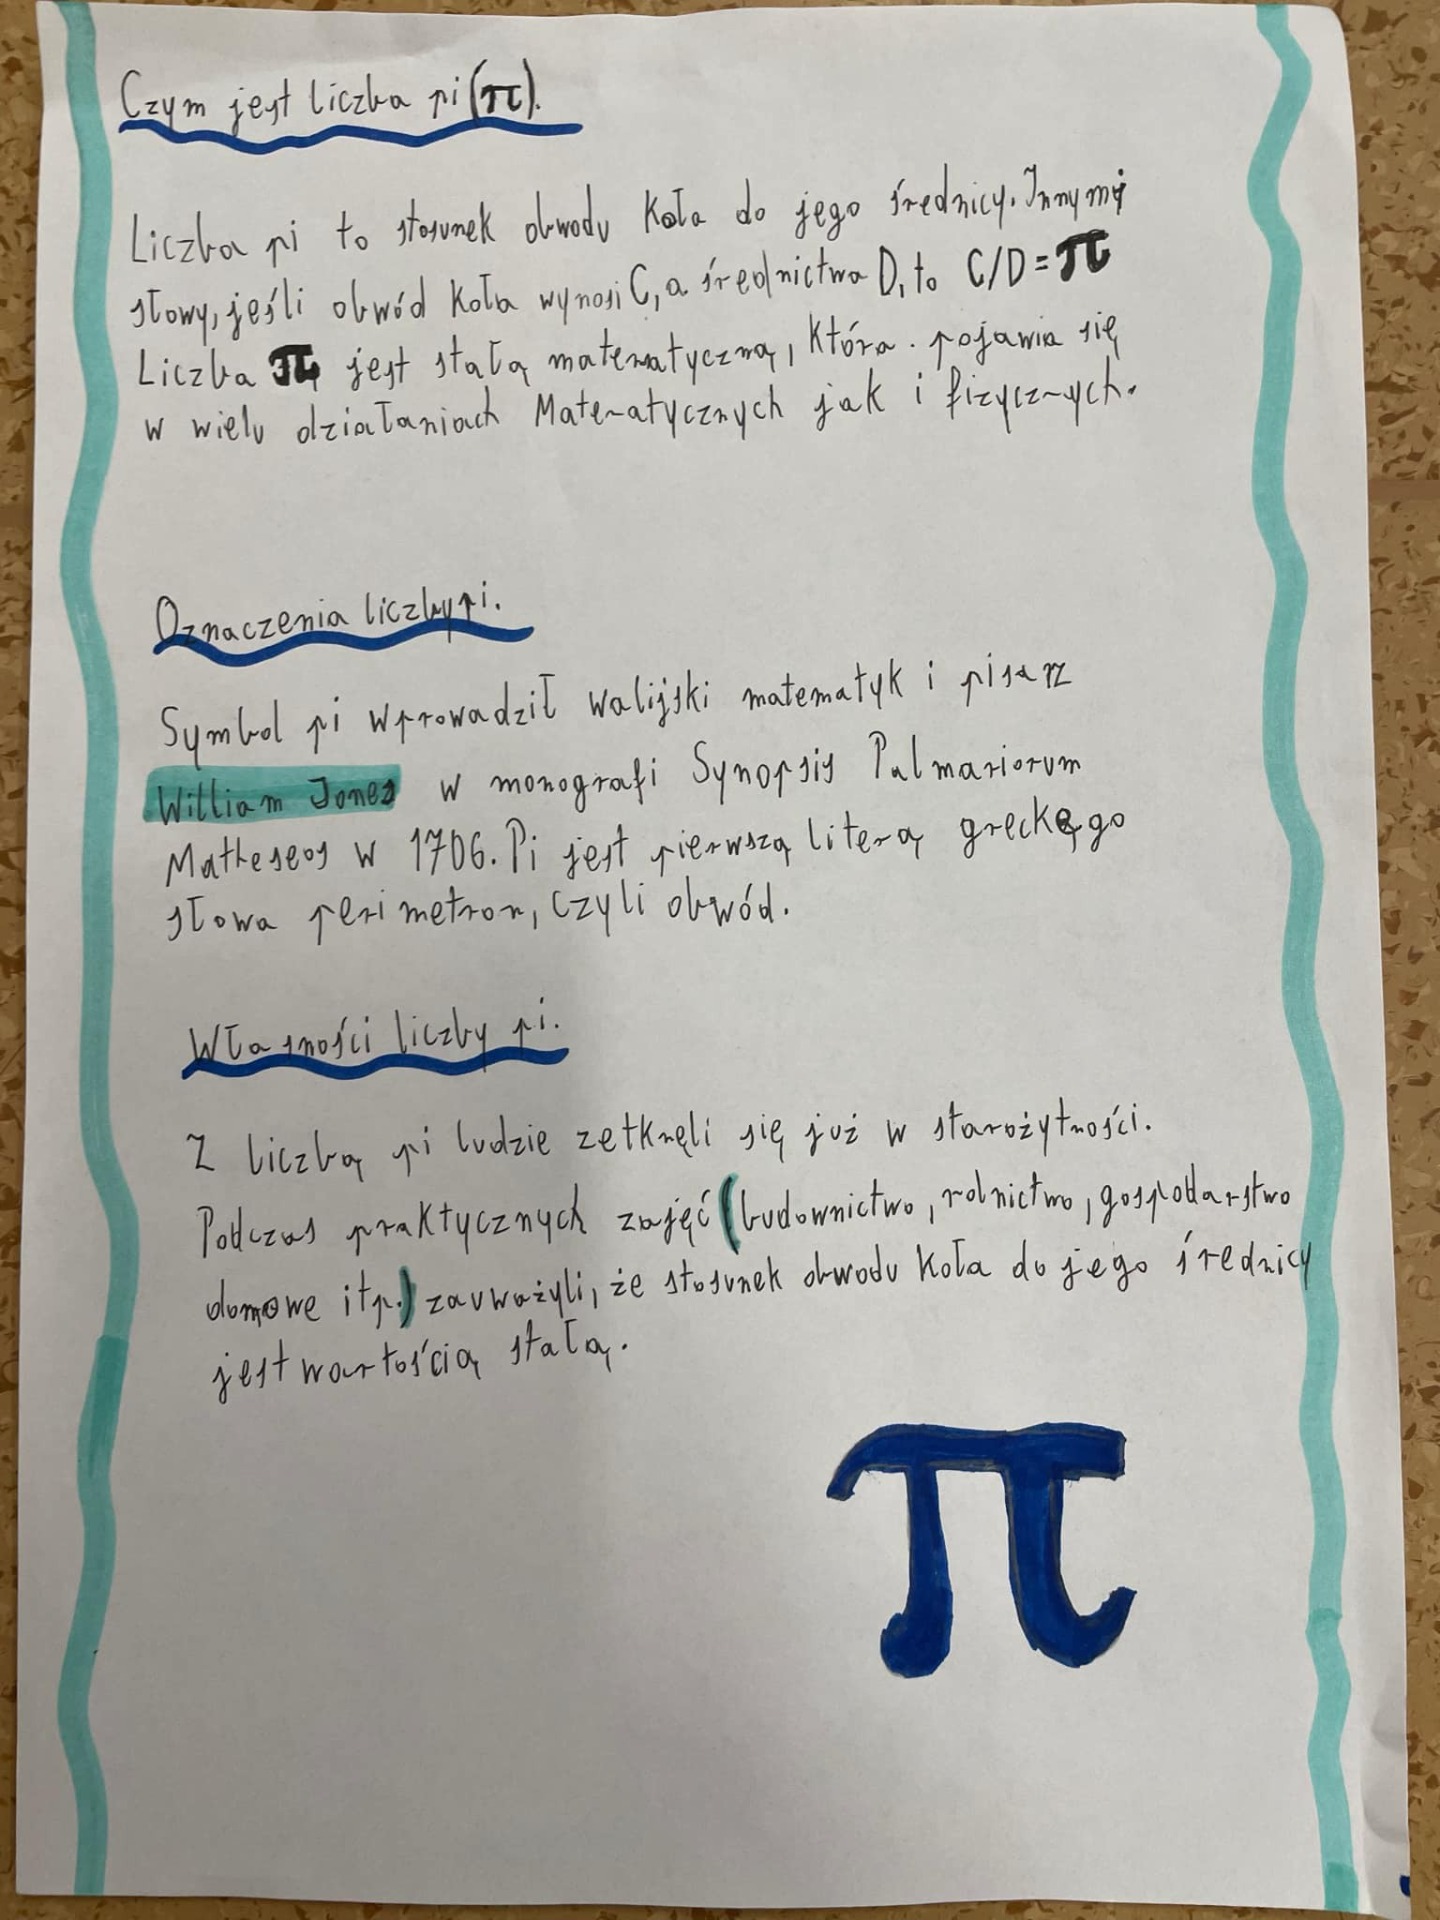 Czym jest liczba pi (π).
Liczba pi to stosunek obwodu koła do jego średnicy. Innymi
słowy, jeśli obwód koła wynosi C, a średnictwa D, to C/D = π
Liczba π jest stałą matematyczną, która. pojawia się
w wielu działaniach Matematycznych jak i fizycznych.
Oznaczenia liczby pi.
Symbol pi wprowadził walijski matematyk i pisarz
William Jones w monografi Synopsis Palmariorum
Matheseos w 1706. Pi jest pierwszą literą greckego
słowa perimetron, czyli obwód.
Własności liczby pi.
Z liczbą pi ludzie zetknęli się już w starożytności.
Podczas praktycznych zajęć (budownictwo, rolnictwo, gospodarstwo
domowe itp.) zauważyli, że stosunek obwodu koła do jego średnicy
jest wartością stałą.
π